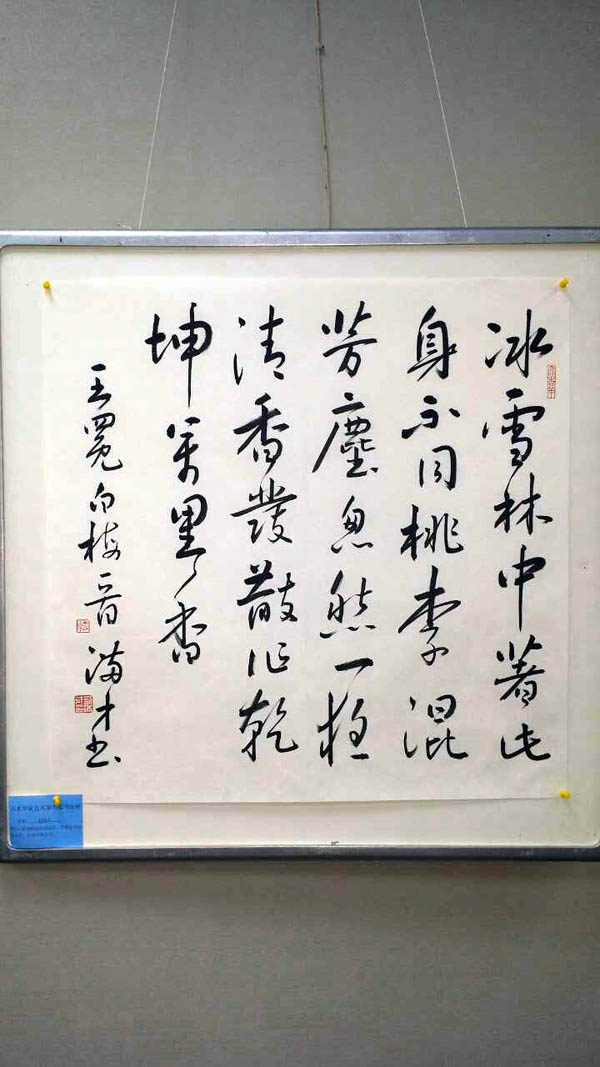 冰雪林中著此
身不同桃李混
芳塵忽然一
清香發散作乾
坤萬里春
王冕白梅一首滿才书